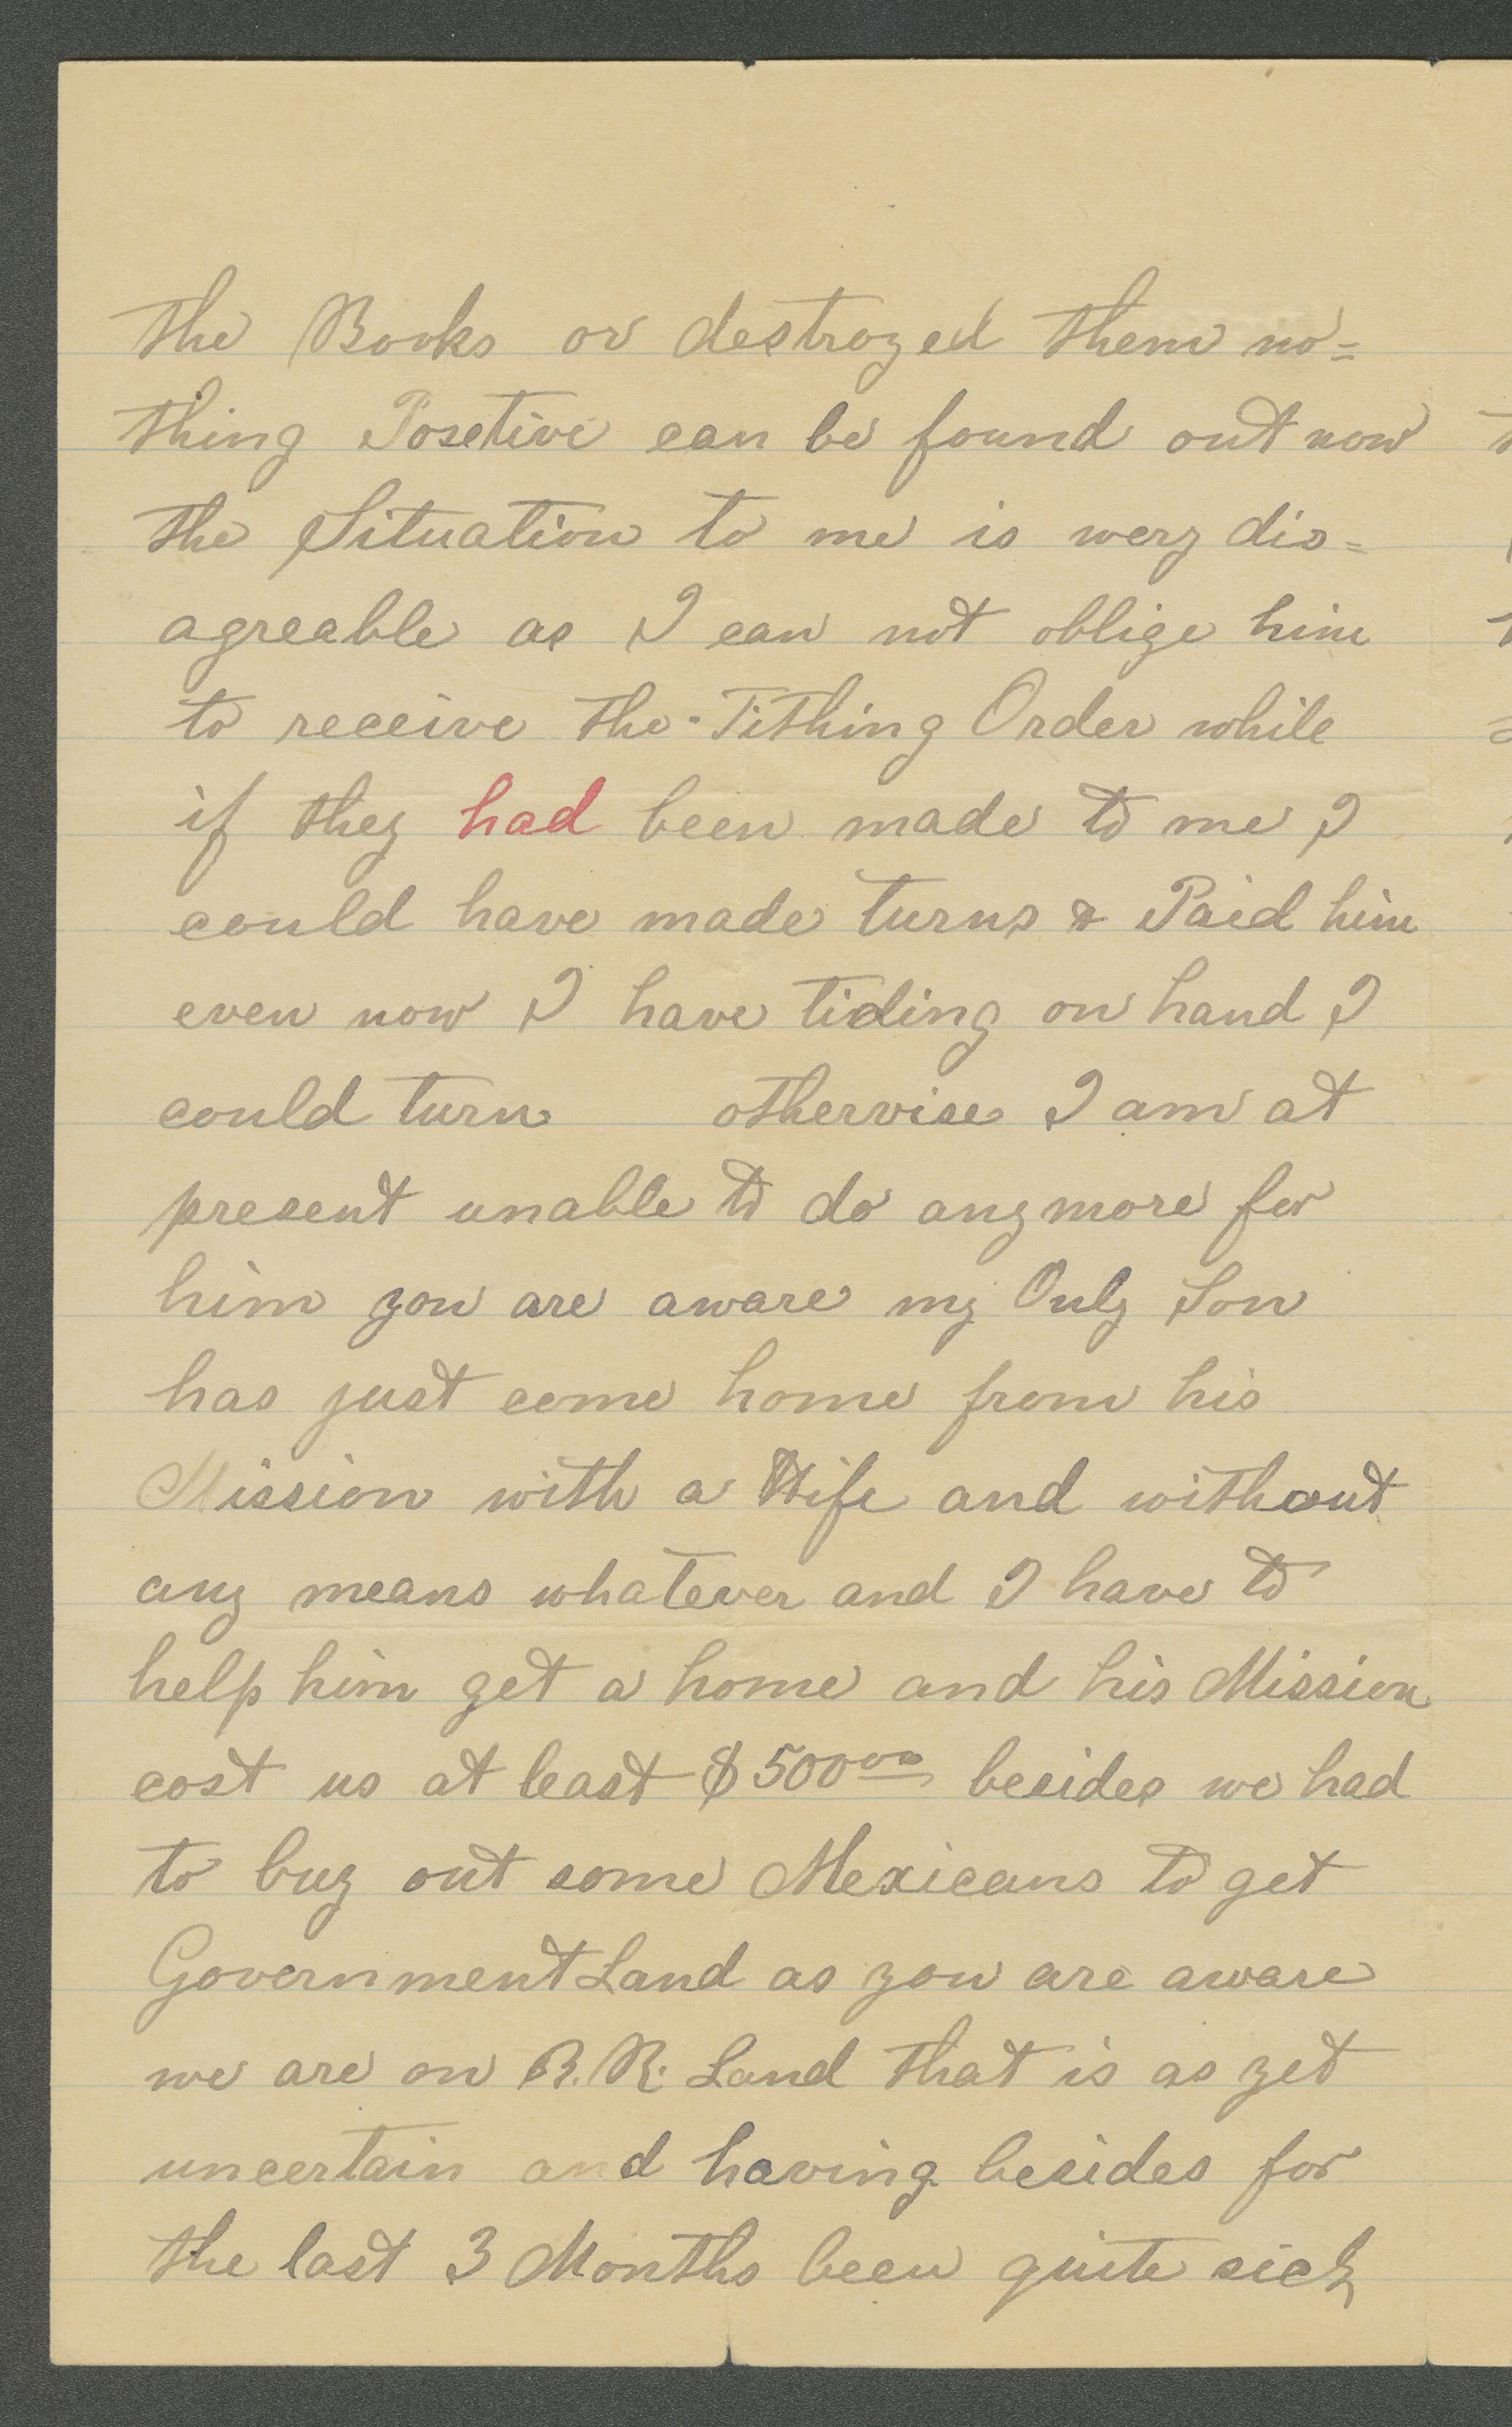 the Books or destroyed them no=
thing Posetive can be found out now
the Situation to me is wery dis=
agreable as I can not oblige him
to receive the Tithing Order while
if they had been made to me I
could have made turns & Paid him
even now I have tiding on hand I
could turn otherwise I am at
present unable to do any more for
him you are aware my Only Son
has just come home from his
Mission with a Wife and without
any means whatever and I have to
help him get a home and his Mission
cost us at least $500 00 besides we had
to buy out some Mexicans to get
Government Land as you are aware
we are on R.R. Land that is as yet
uncertain and having besides for
the last 3 Months been quite sick